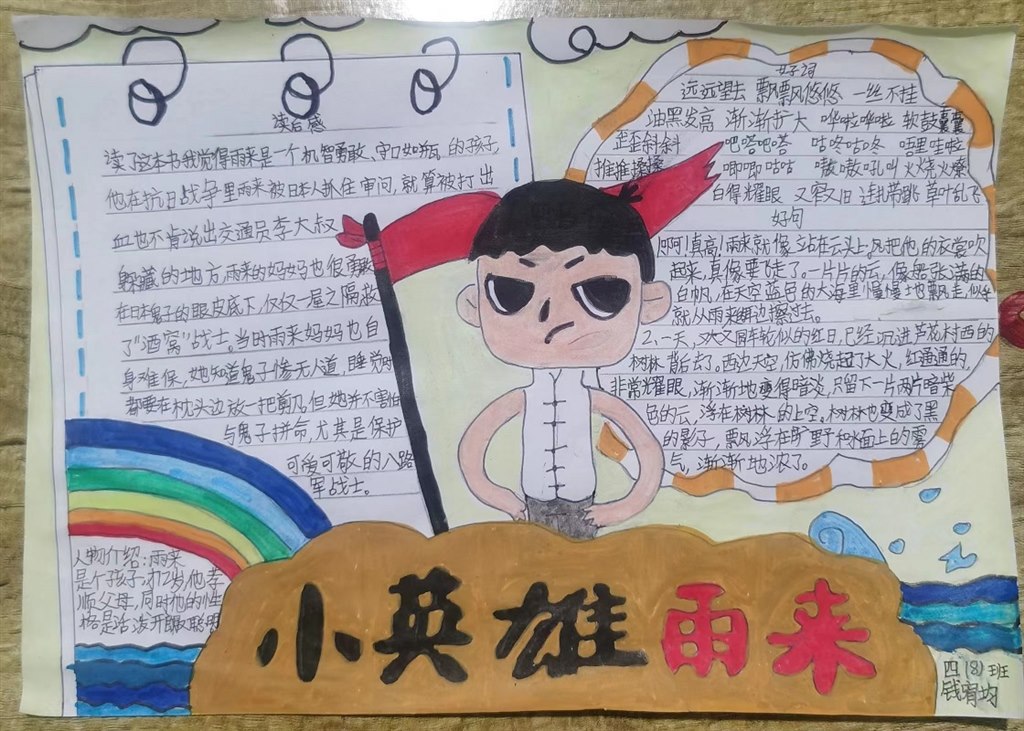 读后感
读了这本书我觉得雨来是一个机智勇敢、守口如瓶的孩子,
他在抗日战争里雨来被日本人抓住审问,就算被打出
血也不肯说出交通员李大叔
躲藏的地方,雨来的妈妈也很勇敢
在日本鬼子的眼皮底下,仅仅一屋之隔救
了"酒窝"战士。当时雨来妈妈也自
身难保,她知道鬼子惨无人道,睡觉时
都要在枕头边放一把剪刀,但她并不害怕
与鬼子拼命,尤其是保护
可爱可敬的八路
军战士。
人物介绍:雨来
是个孩子,才12岁,他孝
顺父母,同时他的性
格是活泼开朗聪明
好词
远远望去 飘飘悠悠 一丝不挂
油黑发高 渐渐扩大 哗啦哗啦 软鼓囊囊
歪歪斜斜 吧嗒吧嗒 咕咚咕咚 唔里哇啦
推推搡搡 唧唧咕咕 嗷嗷吼叫 火烧火燎
白得耀眼 又窄又旧 草叶乱飞
好句
啊!真高!雨来就像站在云头上。风把他的衣裳吹
起来,真像要飞走了。一片片的云,像是张满的
白帆,在天空蓝色的大海里慢慢地飘走,似乎
就从雨来身边擦过去。
2.一天,又大又圆车轮似的红日,已经沉进芦花村西的
树林背后去了。西边天空,仿佛烧起了大火,红通通的,
非常耀眼,渐渐地变得暗淡,只留下一片两片暗紫
色的云,浮在树林的上空。树林也变成了黑
的影子,飘浮在旷野和水面上的雾
气,渐渐地浓了。
小英雄雨来
四(8)班
钱宥均